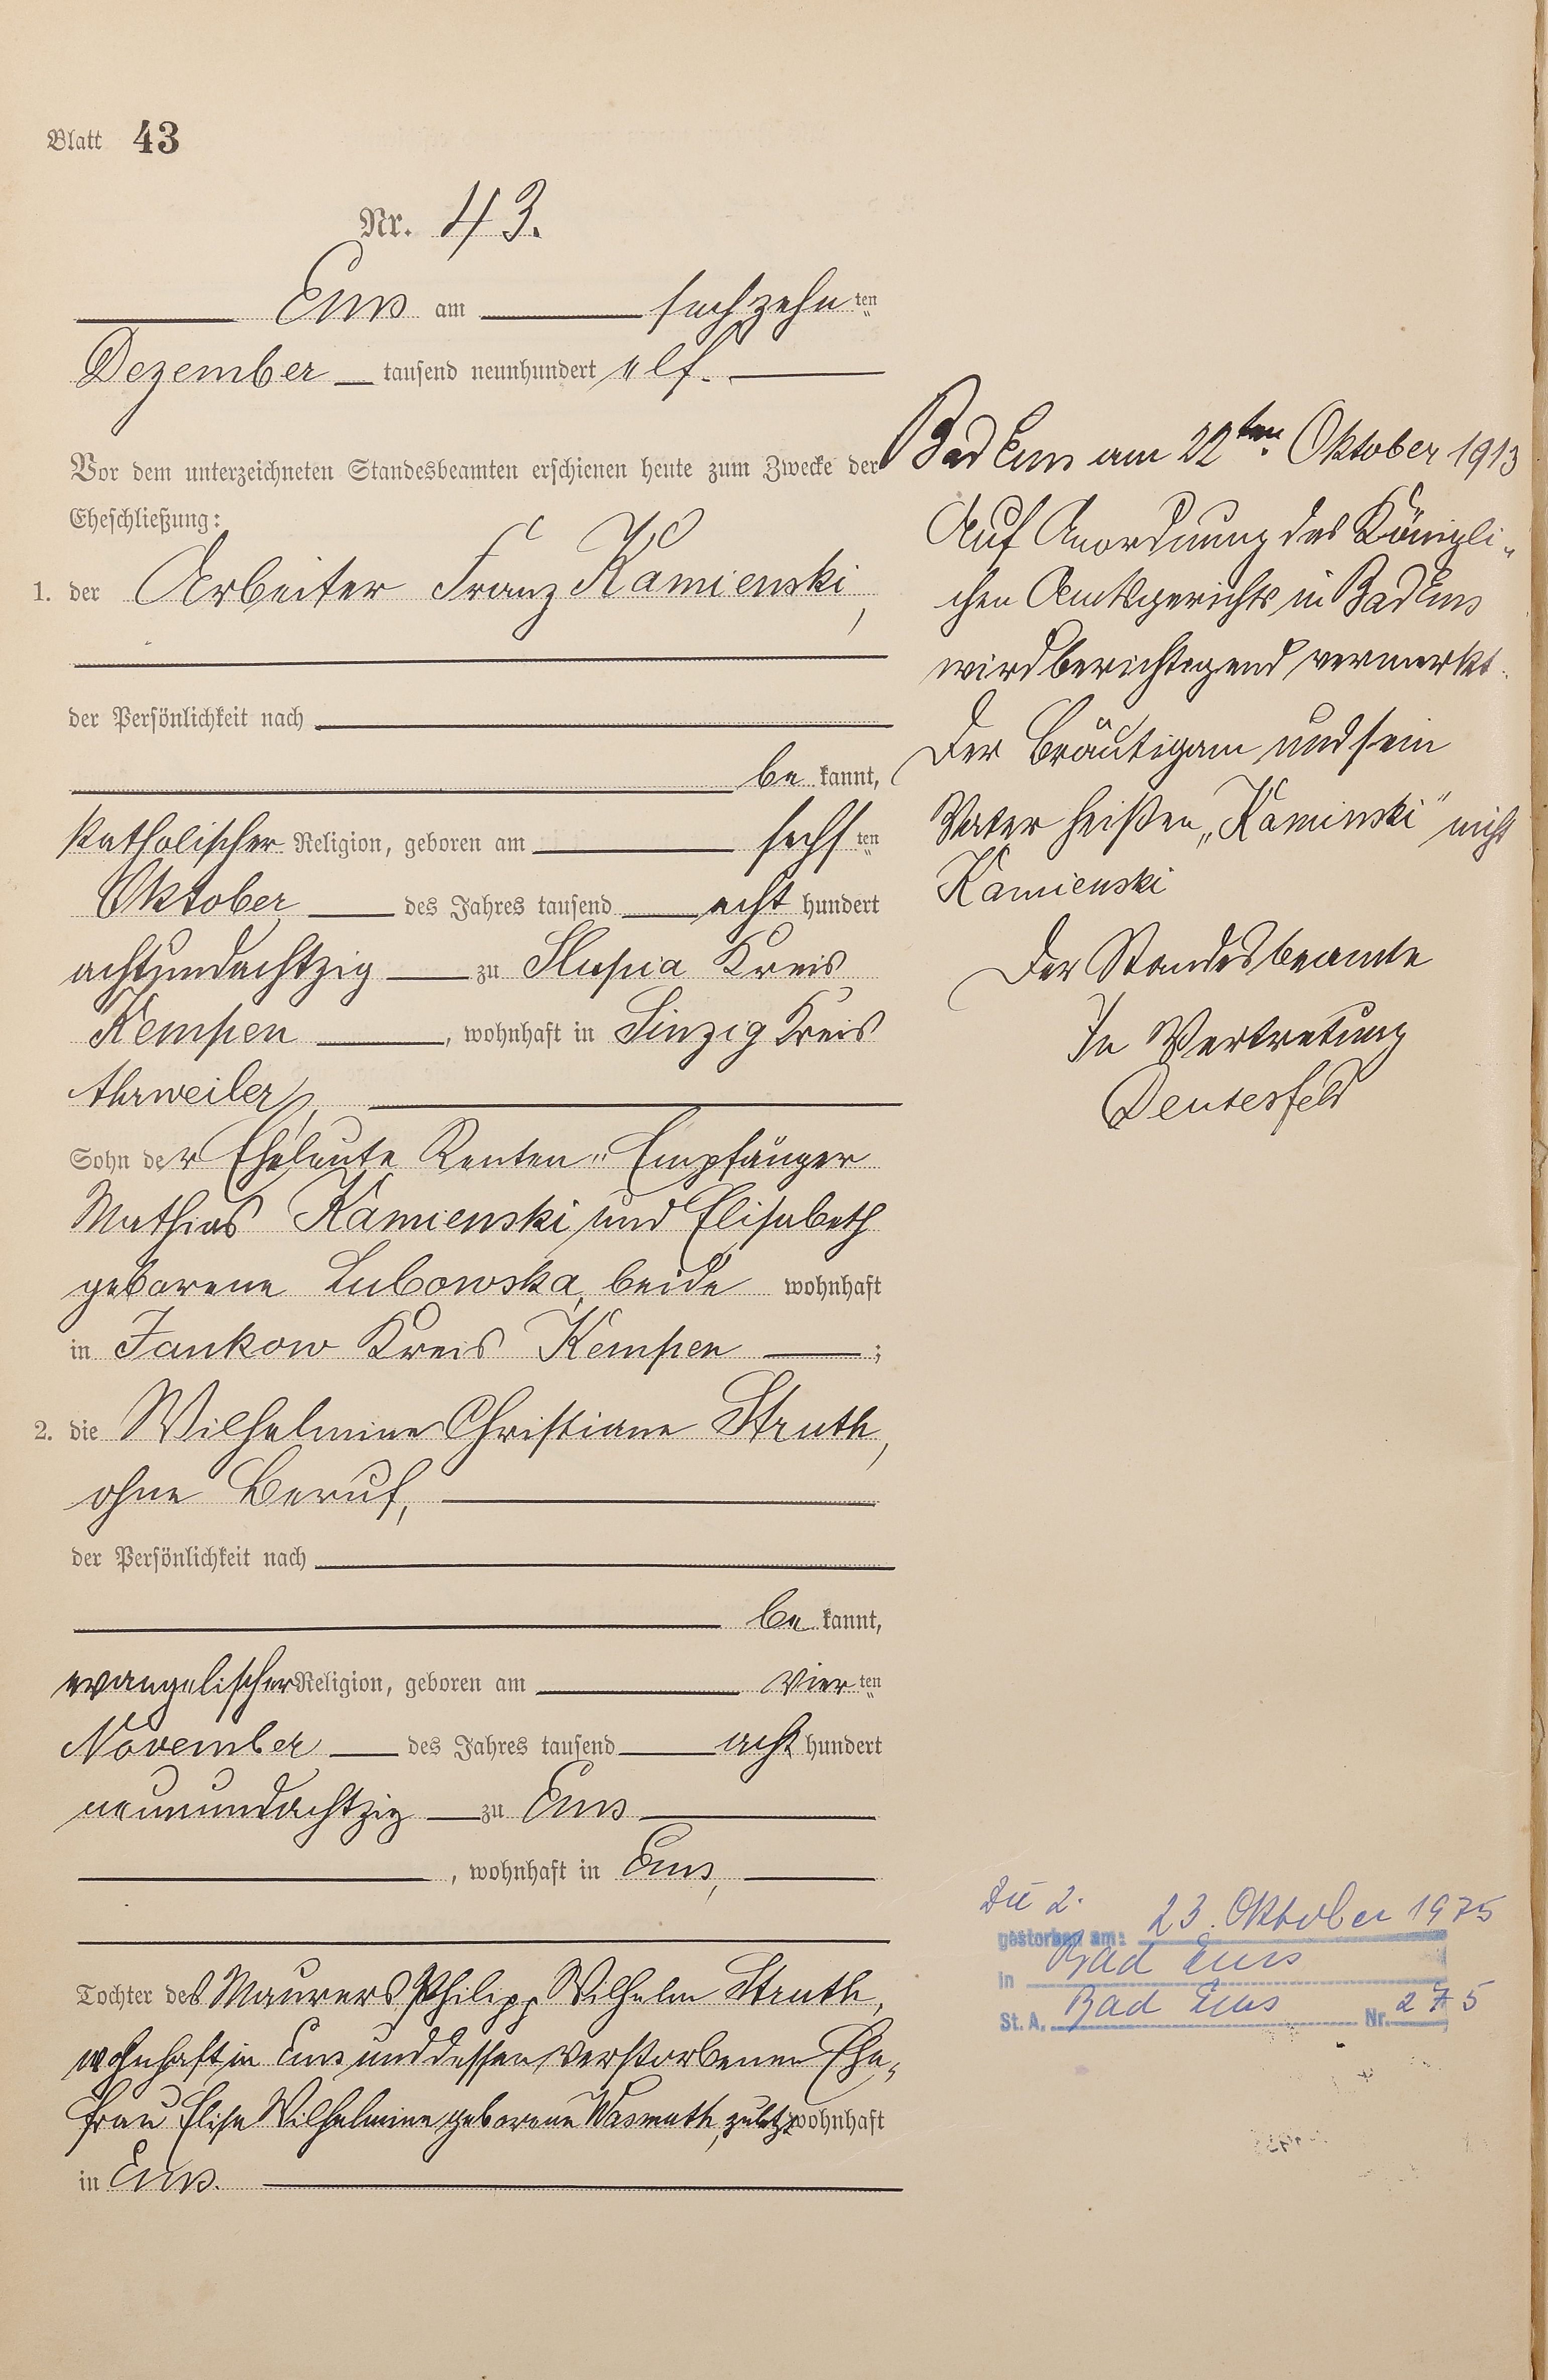 Blatt 43
Nr. 43.
Ems am sechzehnten
Dezember tausend neunhundert elf.
Vor dem unterzeichneten Standesbeamten erschienen heute zum Zwecke der
Eheschließung:
1. der Arbeiter Franz Kamienski,
der Persönlichkeit nach
be kannt,
katholischer Religion, geboren am sechsten
Oktober des Jahres tausend acht hundert
achtundachtzig zu Slupia Kreis
Kempen, wohnhaft in Sinzig Kreis
Ahrweiler,
Sohn der Eheleute Renten-Empfänger
Mathias Kamienski und Elisabeth
geborene Lubowska, beide wohnhaft
in Jankow Kreis Kempen;
2. die Wilhelmine Christiane Struth,
ohne Beruf,
der Persönlichkeit nach
be kannt,
evangelischer Religion, geboren am vierten
November des Jahres tausend acht hundert
neunundachtzig zu Ems
, wohnhaft in Ems,
Tochter des Maurers Philipp Wilhelm Struth,
wohnhaft in Ems und dessen verstorbenen Ehe-
frau Elise Wilhelmine geborene Wasmuth, zuletzt wohnhaft
in Ems.
Bad Ems am 22ten Oktober 1913
Auf Anordnung des Königli-
chen Amtsgerichts in Bad Ems
wird berichtigend vermerkt.
Der Bräutigam und sein
Vater heißen „Kaminski" nicht
Kamienski
Der Standesbeamte
In Vertretung
Deutesfeld
Die 2.
gestorben am: 23. Oktober 1975
in Bad Ems
St. A. Bad Ems Nr. 275